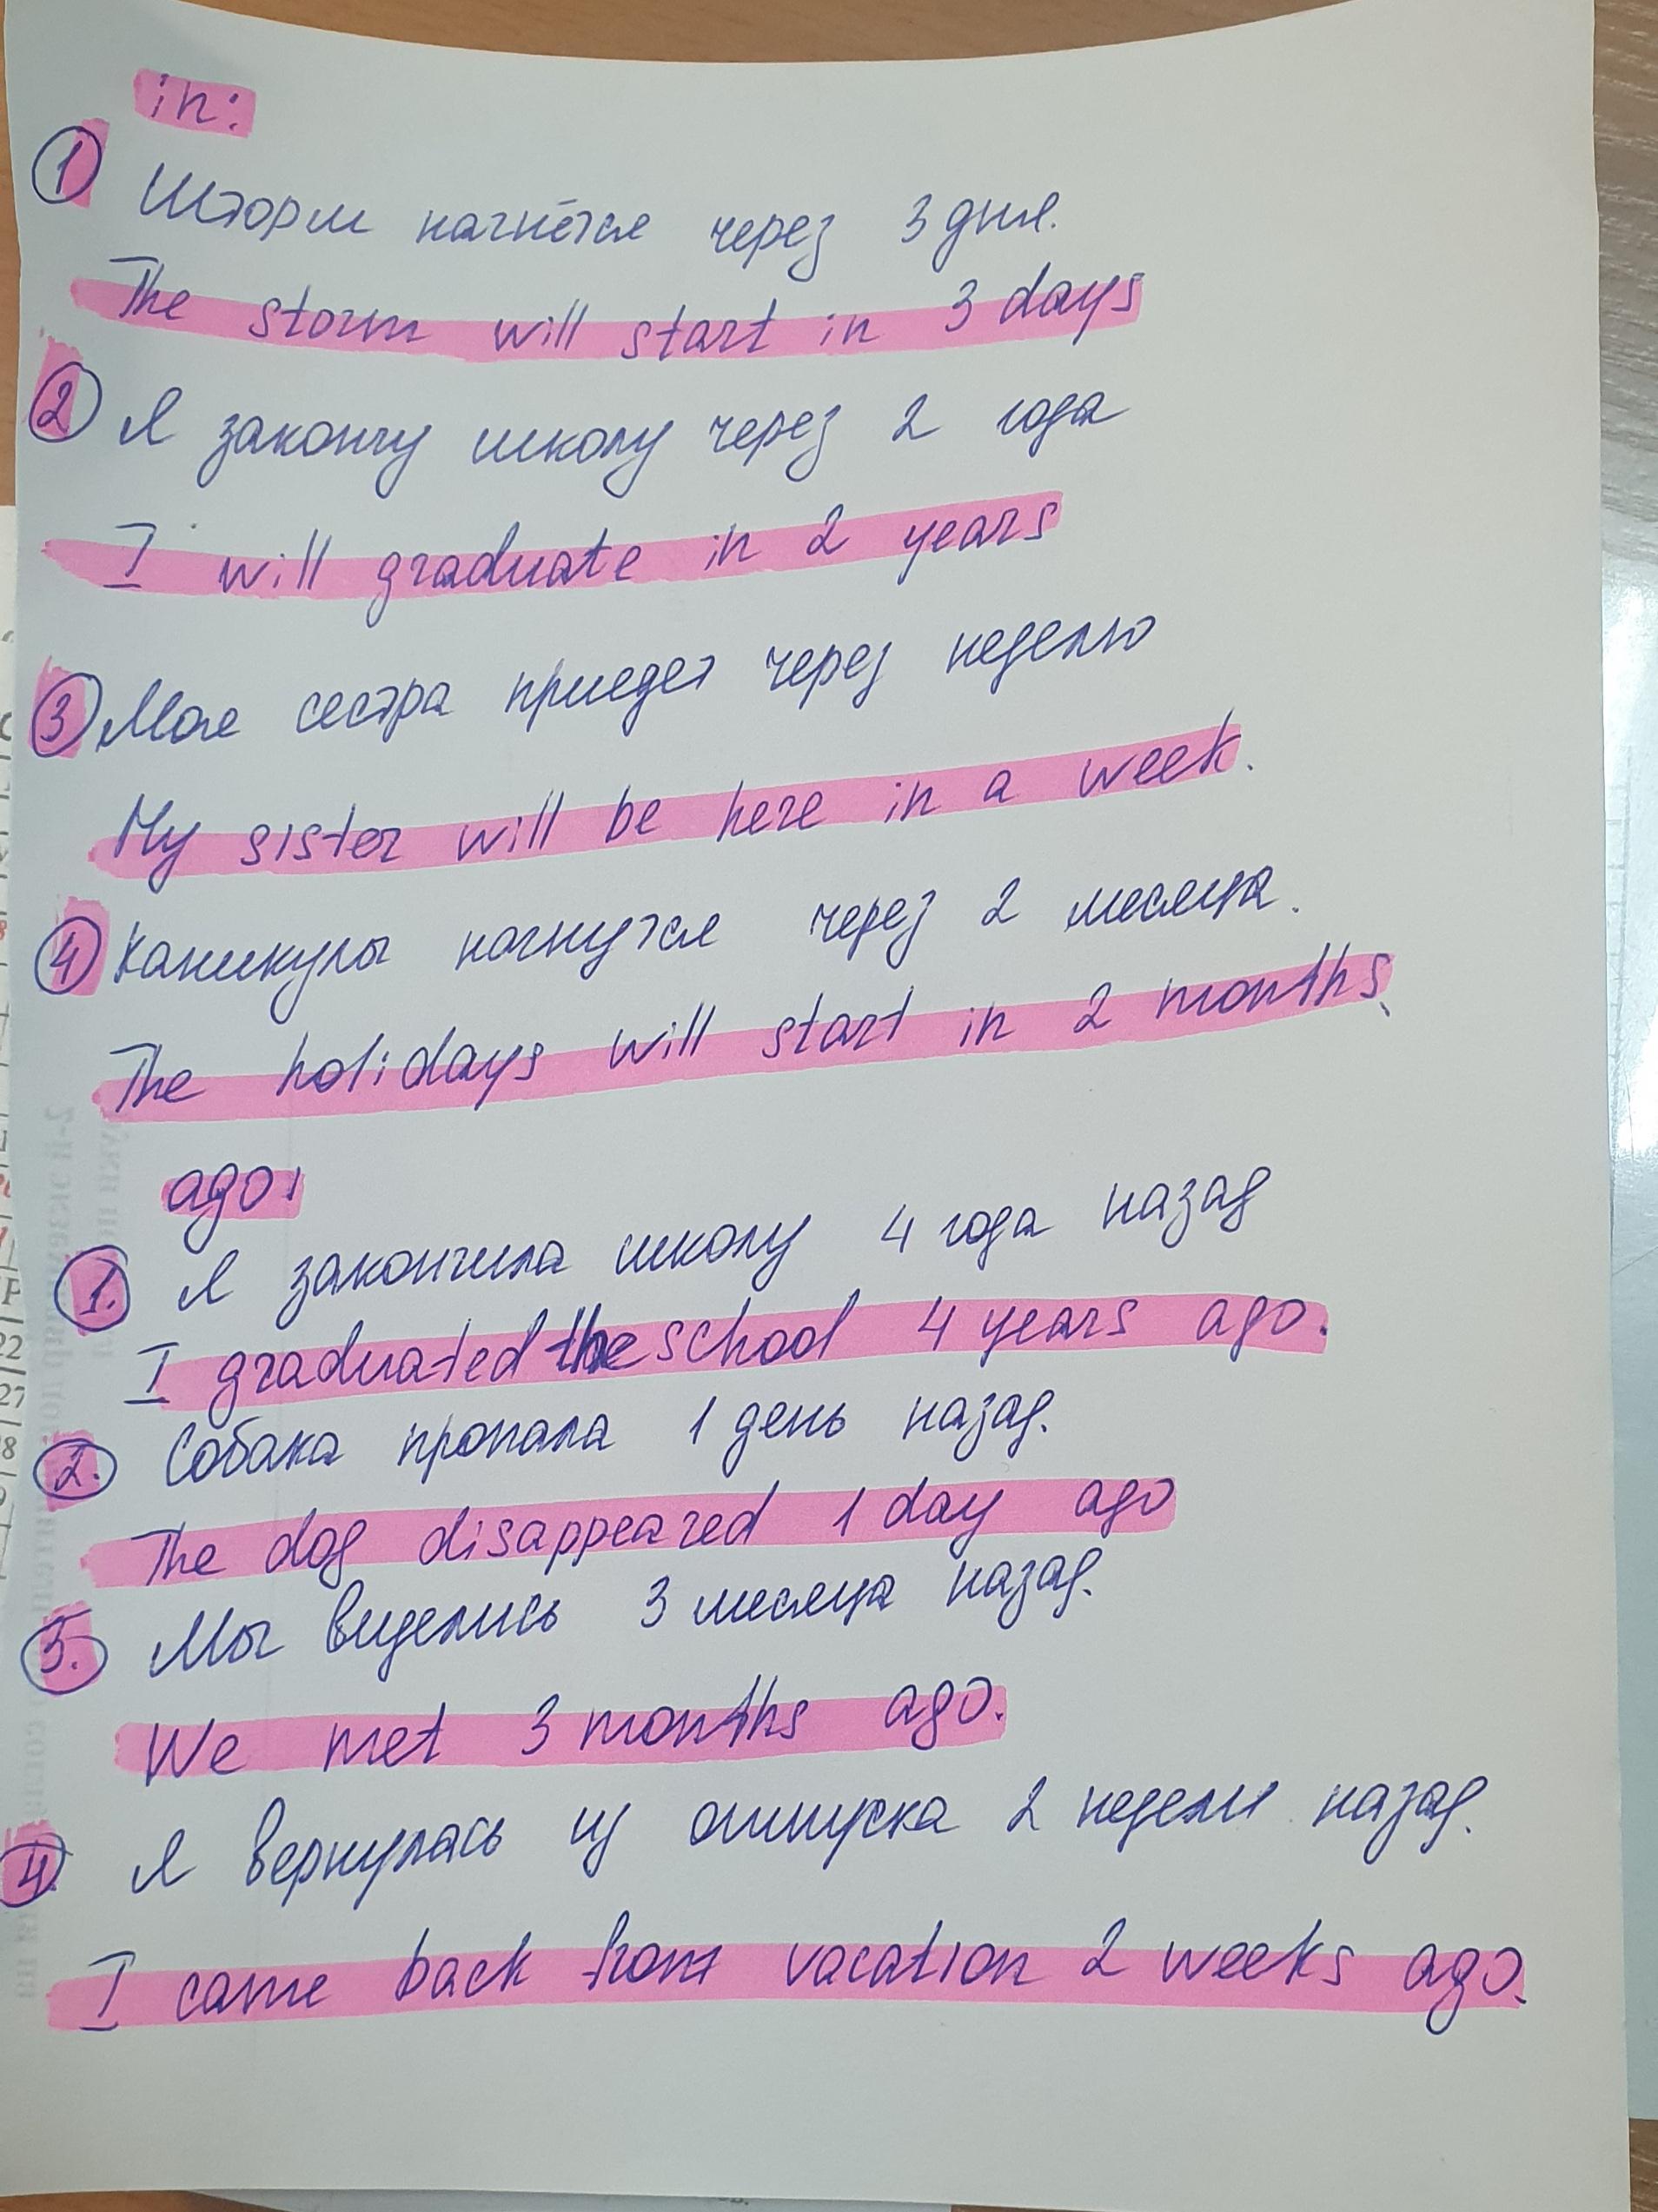 in:
1 Шторм начнётся через 3 дня.
The storm will start in 3 days
2 Я закончу школу через 2 года
I will graduate in 2 years
3 Моя сестра приедет через неделю
My sister will be here in a week.
4 Каникулы начнутся через 2 месяца.
The holidays will start in 2 months.
ago:
1. Я закончила школу 4 года назад
I graduated the school 4 years ago.
2. Собака пропала 1 день назад.
The dog disappeared 1 day ago
3. Мы виделись 3 месяца назад.
We met 3 months ago.
4. Я вернулась из отпуска 2 недели назад.
I came back from vacation 2 weeks ago.